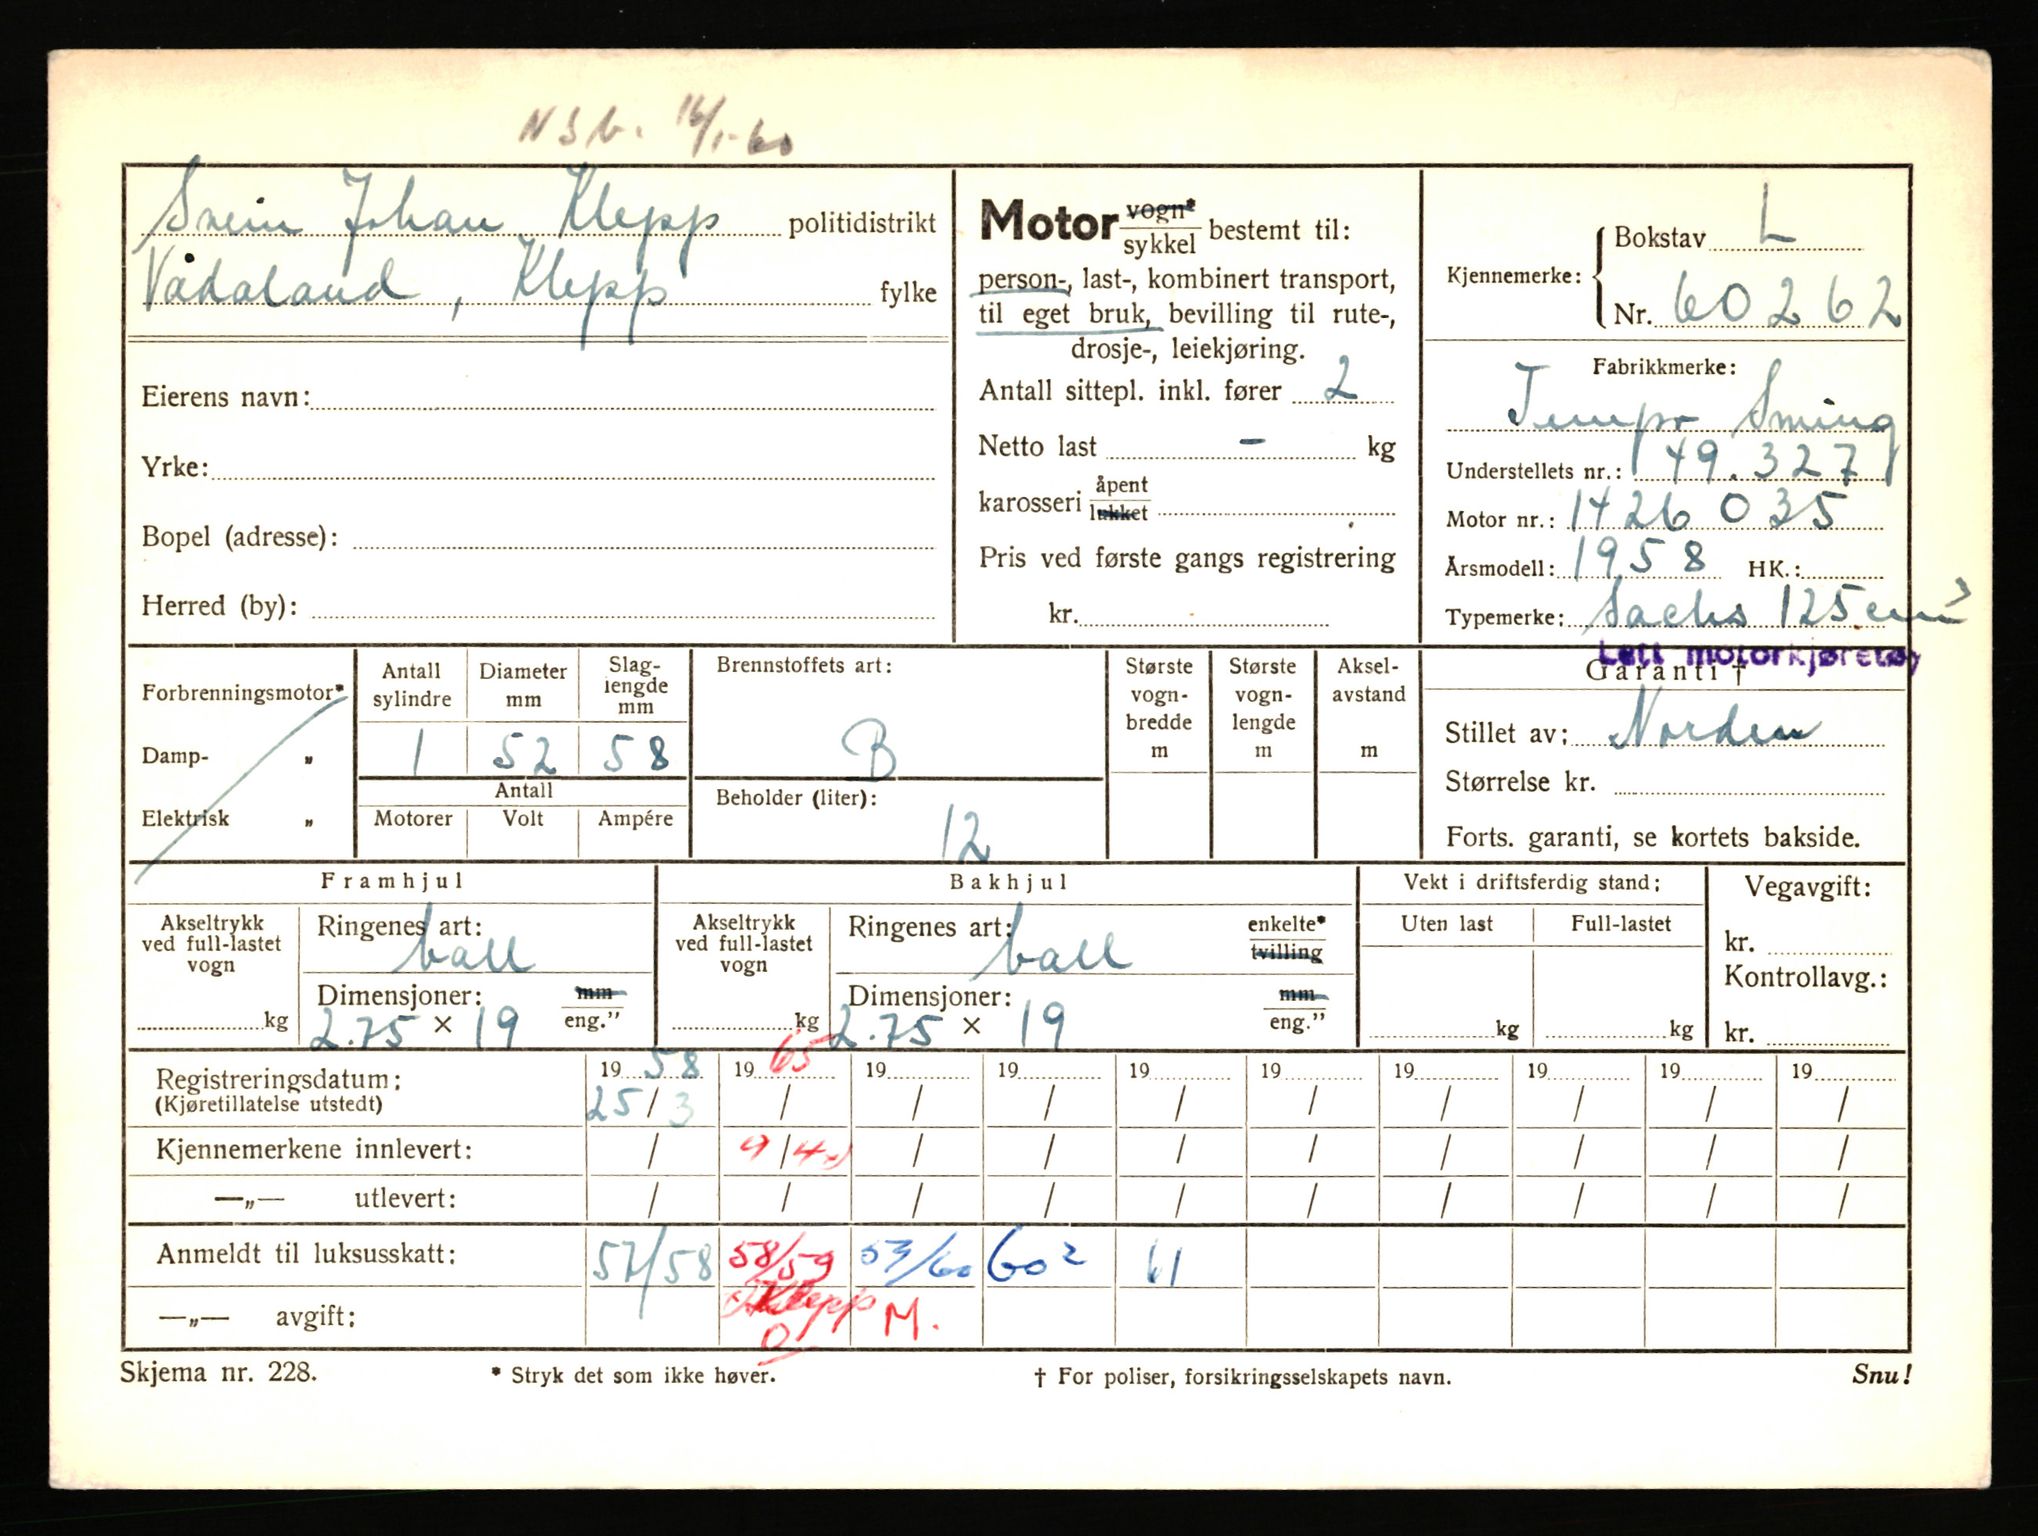 16/1-60
Svein Johan Klepp politidistrikt
Vådaland, Klepp fylke
Eierens navn:
Yrke:
Bopel (adresse):
Herred (by):
Motor vogn* / sykkel bestemt til:
person-, last-, kombinert transport,
til eget bruk, bevilling til rute-,
drosje-, leiekjøring.
Antall sittepl. inkl. fører 2
Netto last - kg
karosseri åpent / lukket
Pris ved første gangs registrering
kr.
Kjennemerke: Bokstav L
Nr. 60262
Fabrikkmerke:
Tempo Swing
Understellets nr.: 149.327
Motor nr.: 1426 035
Årsmodell: 1958 HK.:
Typemerke: Sachs 125 cm³
Lett motorkjøretøy
Garanti †
Stillet av: Norden
Størrelse kr.
Forts. garanti, se kortets bakside.
Forbrenningsmotor*
Damp- „
Elektrisk „
Antall sylindre 1
Diameter mm 52
Slag-lengde mm 58
Antall
Motorer Volt Ampére
Brennstoffets art:
B
Beholder (liter):
12
Største vogn-bredde m
Største vogn-lengde m
Aksel-avstand m
Framhjul
Akseltrykk ved full-lastet vogn
kg
Ringenes art:
ball
Dimensjoner: mm / eng.”
2.75 × 19
Bakhjul
Akseltrykk ved full-lastet vogn
kg
Ringenes art: enkelte* / tvilling
ball
Dimensjoner: mm / eng.”
2.75 × 19
Vekt i driftsferdig stand:
Uten last Full-lastet
kg kg
Vegavgift:
kr.
Kontrollavg.:
kr.
Registreringsdatum: 19 58 19 65 19 19 19 19 19 19 19 19
(Kjøretillatelse utstedt) 25/3 / / / / / / / / /
Kjennemerkene innlevert: / 9/4 / / / / / / / /
—„— utlevert: / / / / / / / / / /
Anmeldt til luksusskatt: 57/58 58/59 59/60 60² 61
—„— avgift: Klepp M.
0
Skjema nr. 228. * Stryk det som ikke høver. † For poliser, forsikringsselskapets navn. Snu!